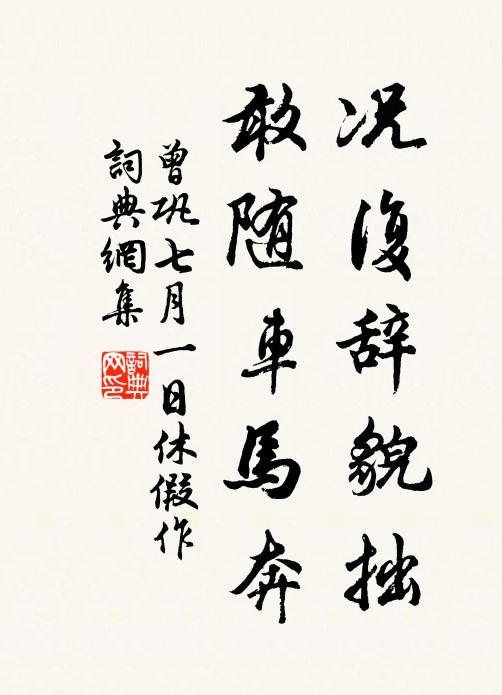 况復辞貌拙
敢随車馬奔
曾巩七月一日休假作
詞典網集
詞典网印